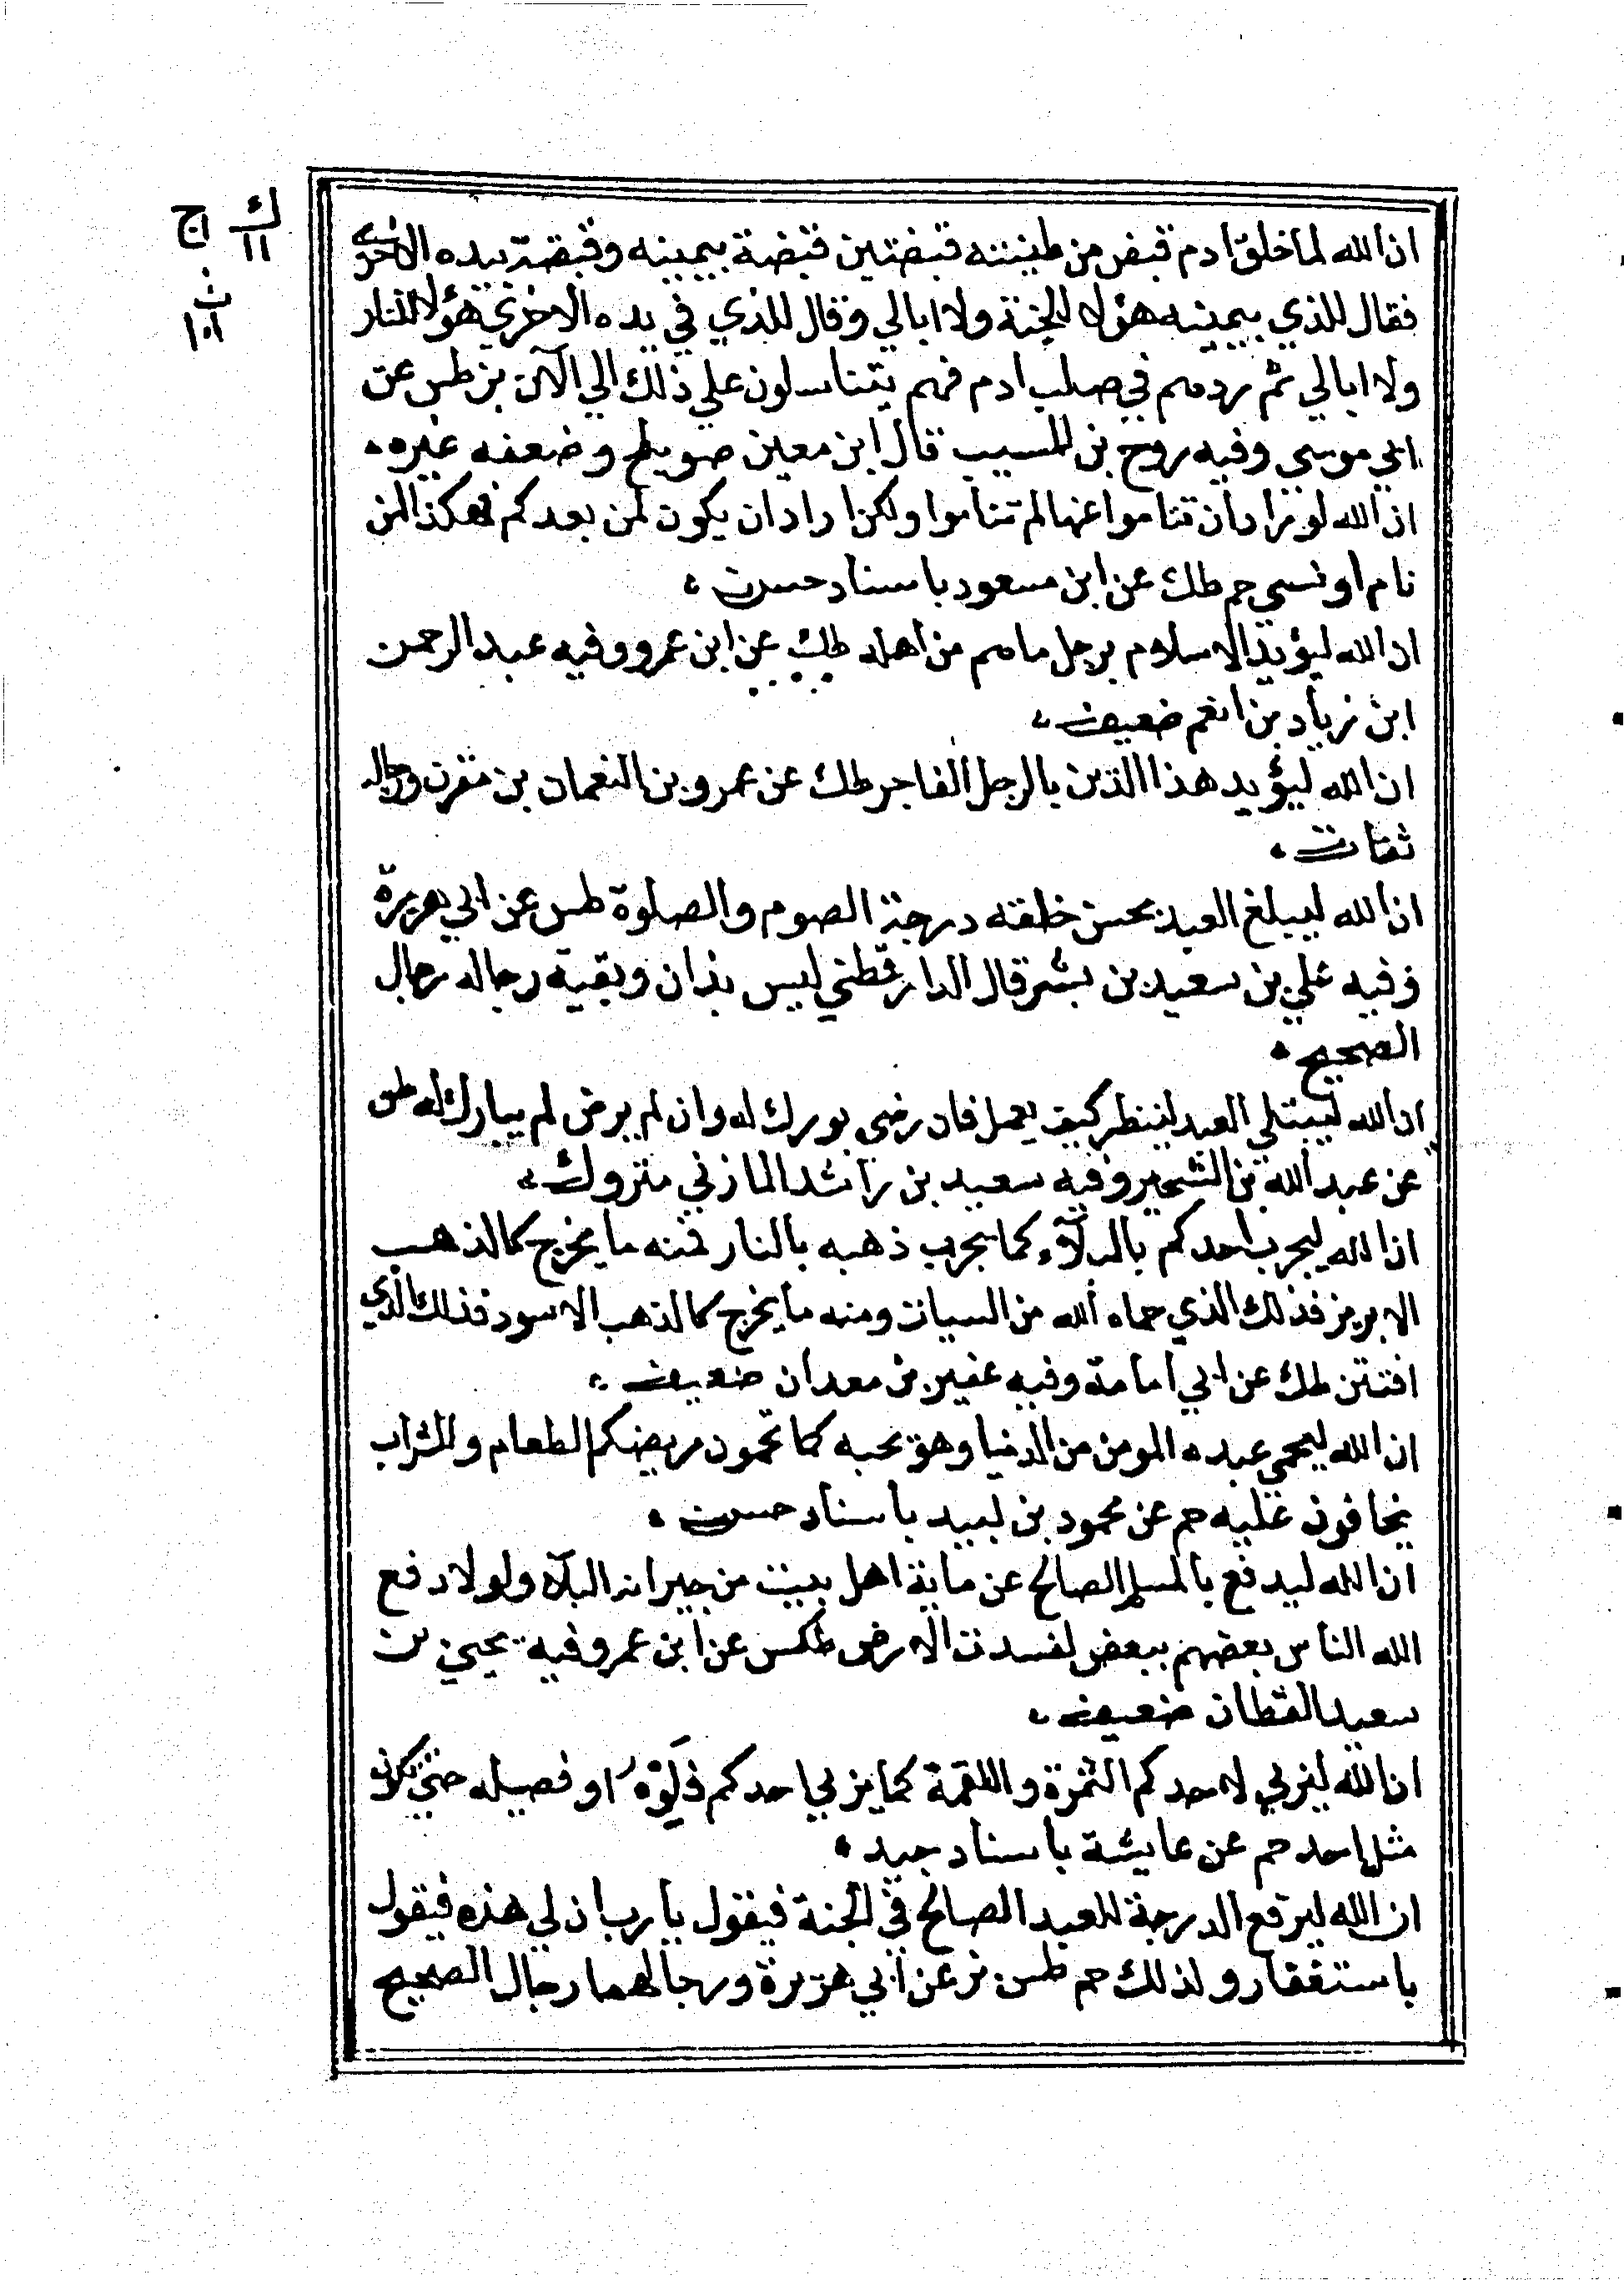 ك ١١ ج ١
ث ١٠١
ان الله لما خلق ادم قبض من طينته قبضتين قبضة بيمينه وقبضة بيده الاخرى
فقال للذي بيمينه هؤلاء للجنة ولا ابالي وقال للذي في يده الاخرى هؤلاء للنار
ولا ابالي ثم ردهم في صلب ادم فهم يتناسلون على ذلك الي الآن بز طس عن
ابي موسى وفيه روح بن المسيب قال ابن معين صويلح وضعفه غيره
ان الله لو اراد ان تناموا عنها لم تناموا ولكن اراد ان يكون لمن بعدكم فهكذا لمن
نام او نسي حم طك عن ابن مسعود باسناد حسن
ان الله ليؤيد الاسلام برجل ماهم من اهله طك عن ابن عمرو وفيه عبد الرحمن
ابن زياد بن انعم ضعيف
ان الله ليؤيد هذا الدين بالرجل الفاجر طك عن عمرو بن النعمان بن مقرن ورجاله
ثقات
ان الله ليبلغ العبد بحسن خلقه درجة الصوم والصلوة طس عن ابي هريرة
وفيه علي بن سعيد بن بشر قال الدارقطني ليس بذان وبقية رجاله رجال
الصحيح
ان الله ليبتلي العبد لينظر كيف يعمل فان رضي بورك له وان لم يرض لم يبارك له طس
عن عبد الله بن الشخير وفيه سعيد بن راشد المازني متروك
ان الله ليجرب احدكم بالبلآء كما يجرب ذهبه بالنار فمنه ما يخرج كالذهب
الابريز فذلك الذي حماه الله من السيات ومنه ما يخرج كالذهب الاسود فذلك الذي
افتتن طك عن ابي امامة وفيه عفير بن معدان ضعيف
ان الله ليحمي عبده المومن من الدنيا وهو يحبه كما تحمون مريضكم الطعام والشراب
تخافون عليه حم عن محمود بن لبيد باسناد حسن
ان الله ليدفع بالمسلم الصالح عن ماية اهل بيت من جيرانه البلآء ولولا دفع
الله الناس بعضهم ببعض لفسدت الارض طكس عن ابن عمر وفيه يحيى بن
سعيد القطان ضعيف
ان الله ليربي لاحدكم التمرة واللقمة كما يربي احدكم فلوّه او فصيله حتى يكون
مثل احد حم عن عايشة باسناد جيد
ان الله ليرفع الدرجة للعبد الصالح في الجنة فيقول يا رب ان لي هذه فيقول
باستغفار ولدك حم طس بز عن ابي هريرة ورجالهما رجال الصحيح